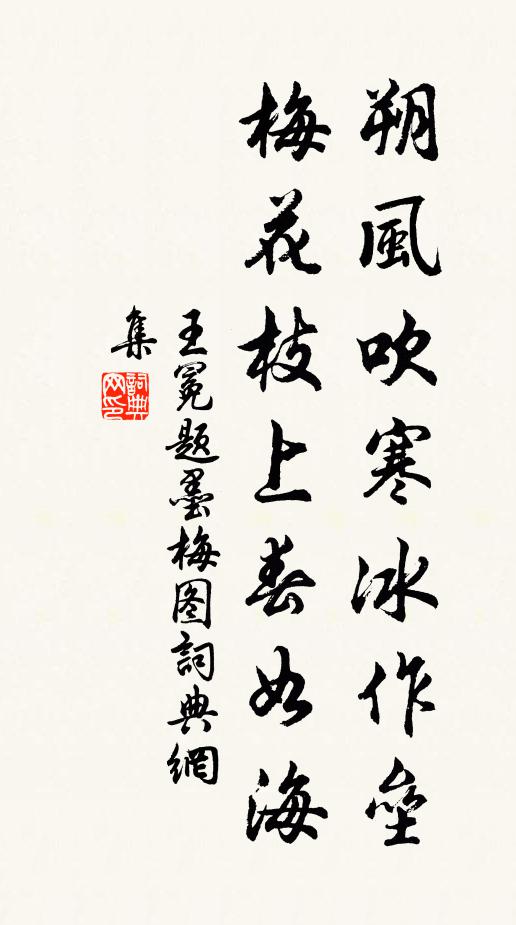 朔風吹寒冰作壘
梅花枝上春如海
王冕題墨梅图詞典網
集
詞典
网印